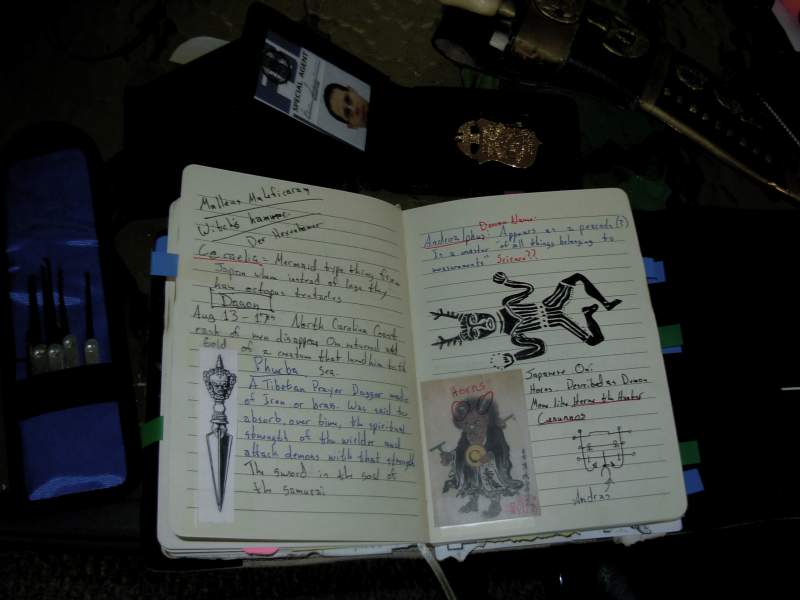 SPECIAL AGENT
Malleus Maleficarum
Witch's hammer
Der Hexenhammer
= Mermaid type thing from
Japan where instead of legs they
have octopus tentacles
Dagon
Aug 13-17th North Carolina Coast
of men disappear One returned and
told of a creature that lured him to the
sea.
Phurba
A Tibetan Prayer Dagger made
of Iron or brass. Was said to
absorb, over time, the spiritual
strength of the wielder and
attack demons with that strength
The sword is the soul of
the samurai
Demon Name:
Andrealphus: Appears as a peacock(?)
Is a master "of all things belonging to
measurements" Science??
Horns
Japanese Oni
Horns Described as Demon
More like Herne the Hunter
Cernunnos
Andras